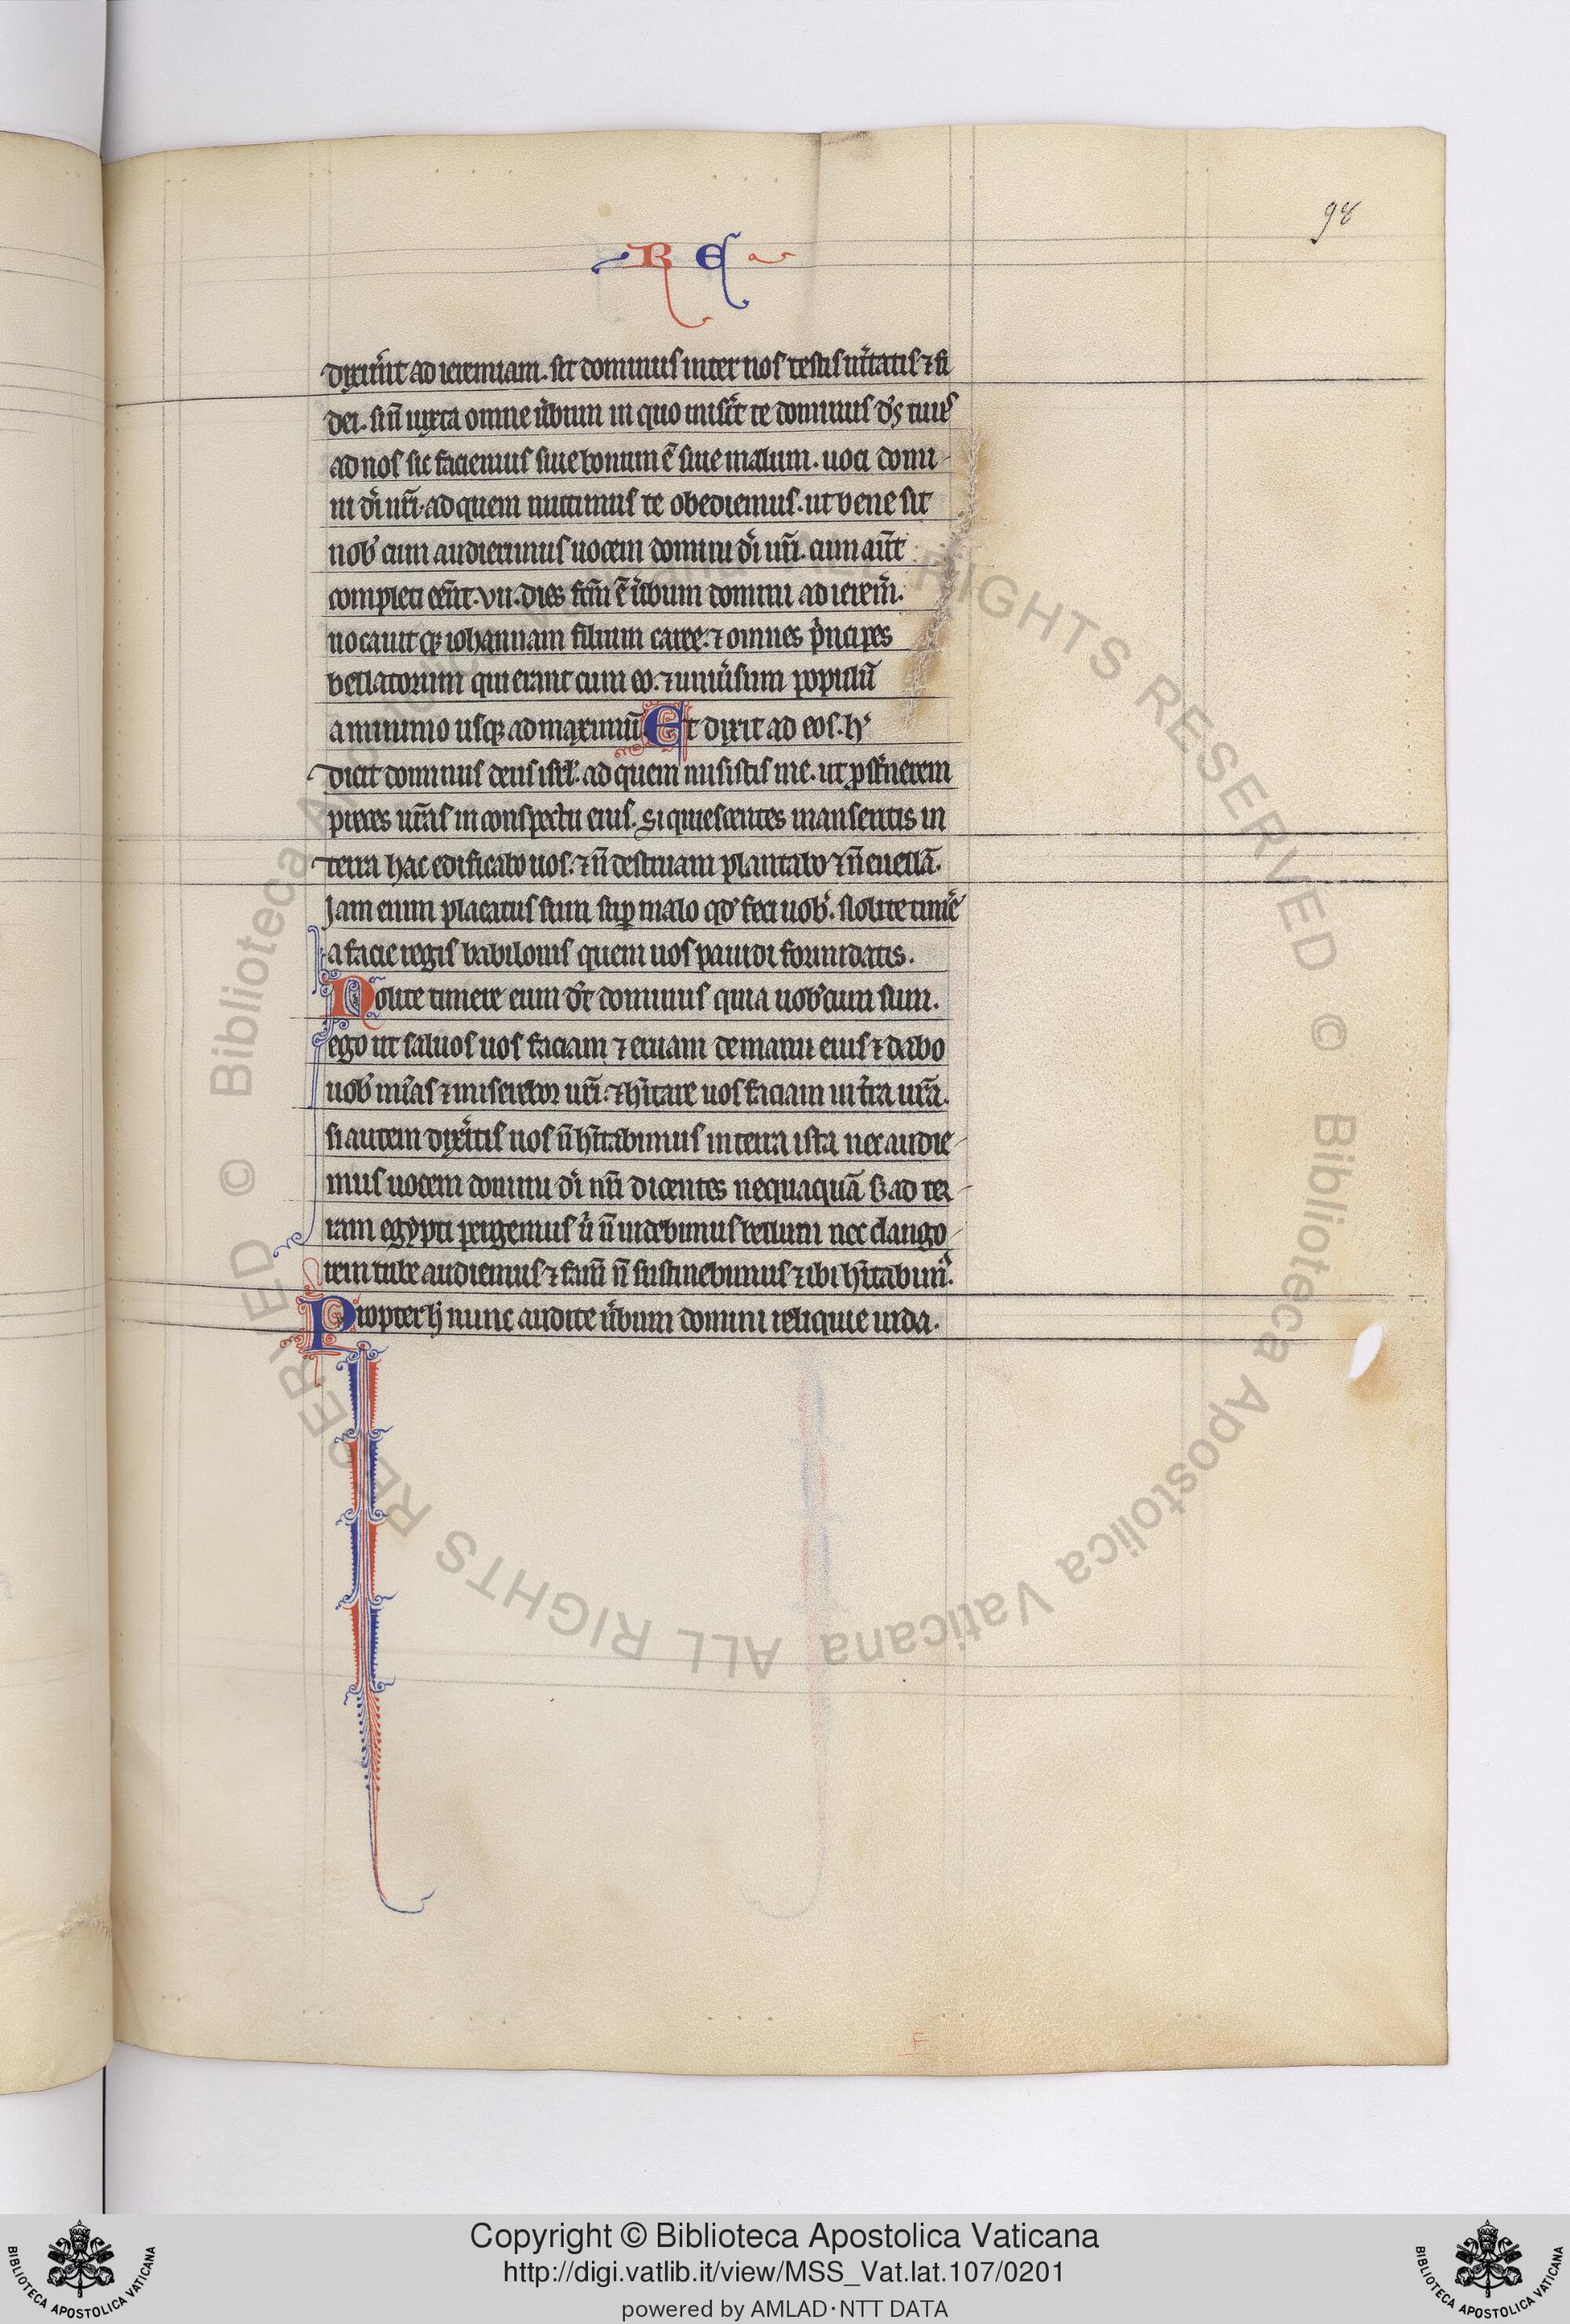 98
R E
dixer̄nt ad ieremiam. sit dominus inter nos testis ueͥtatis ⁊ fi
dei. si n̄ iuxta omne ůbum in quo misͥit te dominus d̕s tuus
ad nos sic faciemus siue bonum ē siue malum. uoci domi-
ni dı̕ nr̄i. ad quem mittimus te obediemus. ut bene sit
nob̕ cum audierimus uocem domini dı̕ nr̄i. cum aūt
completi eēnt. vii. dies fc̄m ē ůbum domini ad ierem̄.
uocauitqꝫ iohannam filium caree. ⁊ omnes pͥncipes
bellatorum qui erant cum eo. ⁊ uniůsum populū
a minimo usqꝫ ad maximū Et dixit ad eos. h̕
dicit dominus deus isrl̕. ad quem misistis me. ut ꝓst̕nerem
preces ur̄as in conspectu eius. Si quiescentes manseritis in
terra hac edificabo uos. ⁊ n̄ destruam plantabo ⁊ n̄ euellā.
Jam enim placatus sum suꝑ malo qd̕ feci uob̕. Nolite timē
a facie regis babilonis quem uos pauidi formidatis.
Nolite timere eum dı̄t dominus quia uob̕cum sum.
ego ut saluos uos faciam ⁊ eruam de manu eius ⁊ dabo
uob̕ mı̄as ⁊ miserebor ur̄i. ⁊ hı̄tare uos faciam in t̕ra ur̄a.
si autem dixer̄itis nos n̄ hı̄tabimus in terra ista nec audie-
mus uocem domini dı̕ nr̄i dicentes nequaquā sꝫ ad ter-
ram egypti pergemus u̕ n̄ uidebimus bellum nec clango-
rem tube audiemus ⁊ fam̄ n̄ sustinebimus ⁊ ibi hı̄tabim̕.
Propter h̄ nunc audite ůbum domini reliquie iuda.
Copyright © Biblioteca Apostolica Vaticana
http://digi.vatlib.it/view/MSS_Vat.lat.107/0201
powered by AMLAD·NTT DATA
BIBLIOTECA APOSTOLICA VATICANA
BIBLIOTECA APOSTOLICA VATICANA
© Biblioteca Apostolica Vaticana ALL RIGHTS RESERVED
© Biblioteca Apostolica Vaticana ALL RIGHTS RESERVED